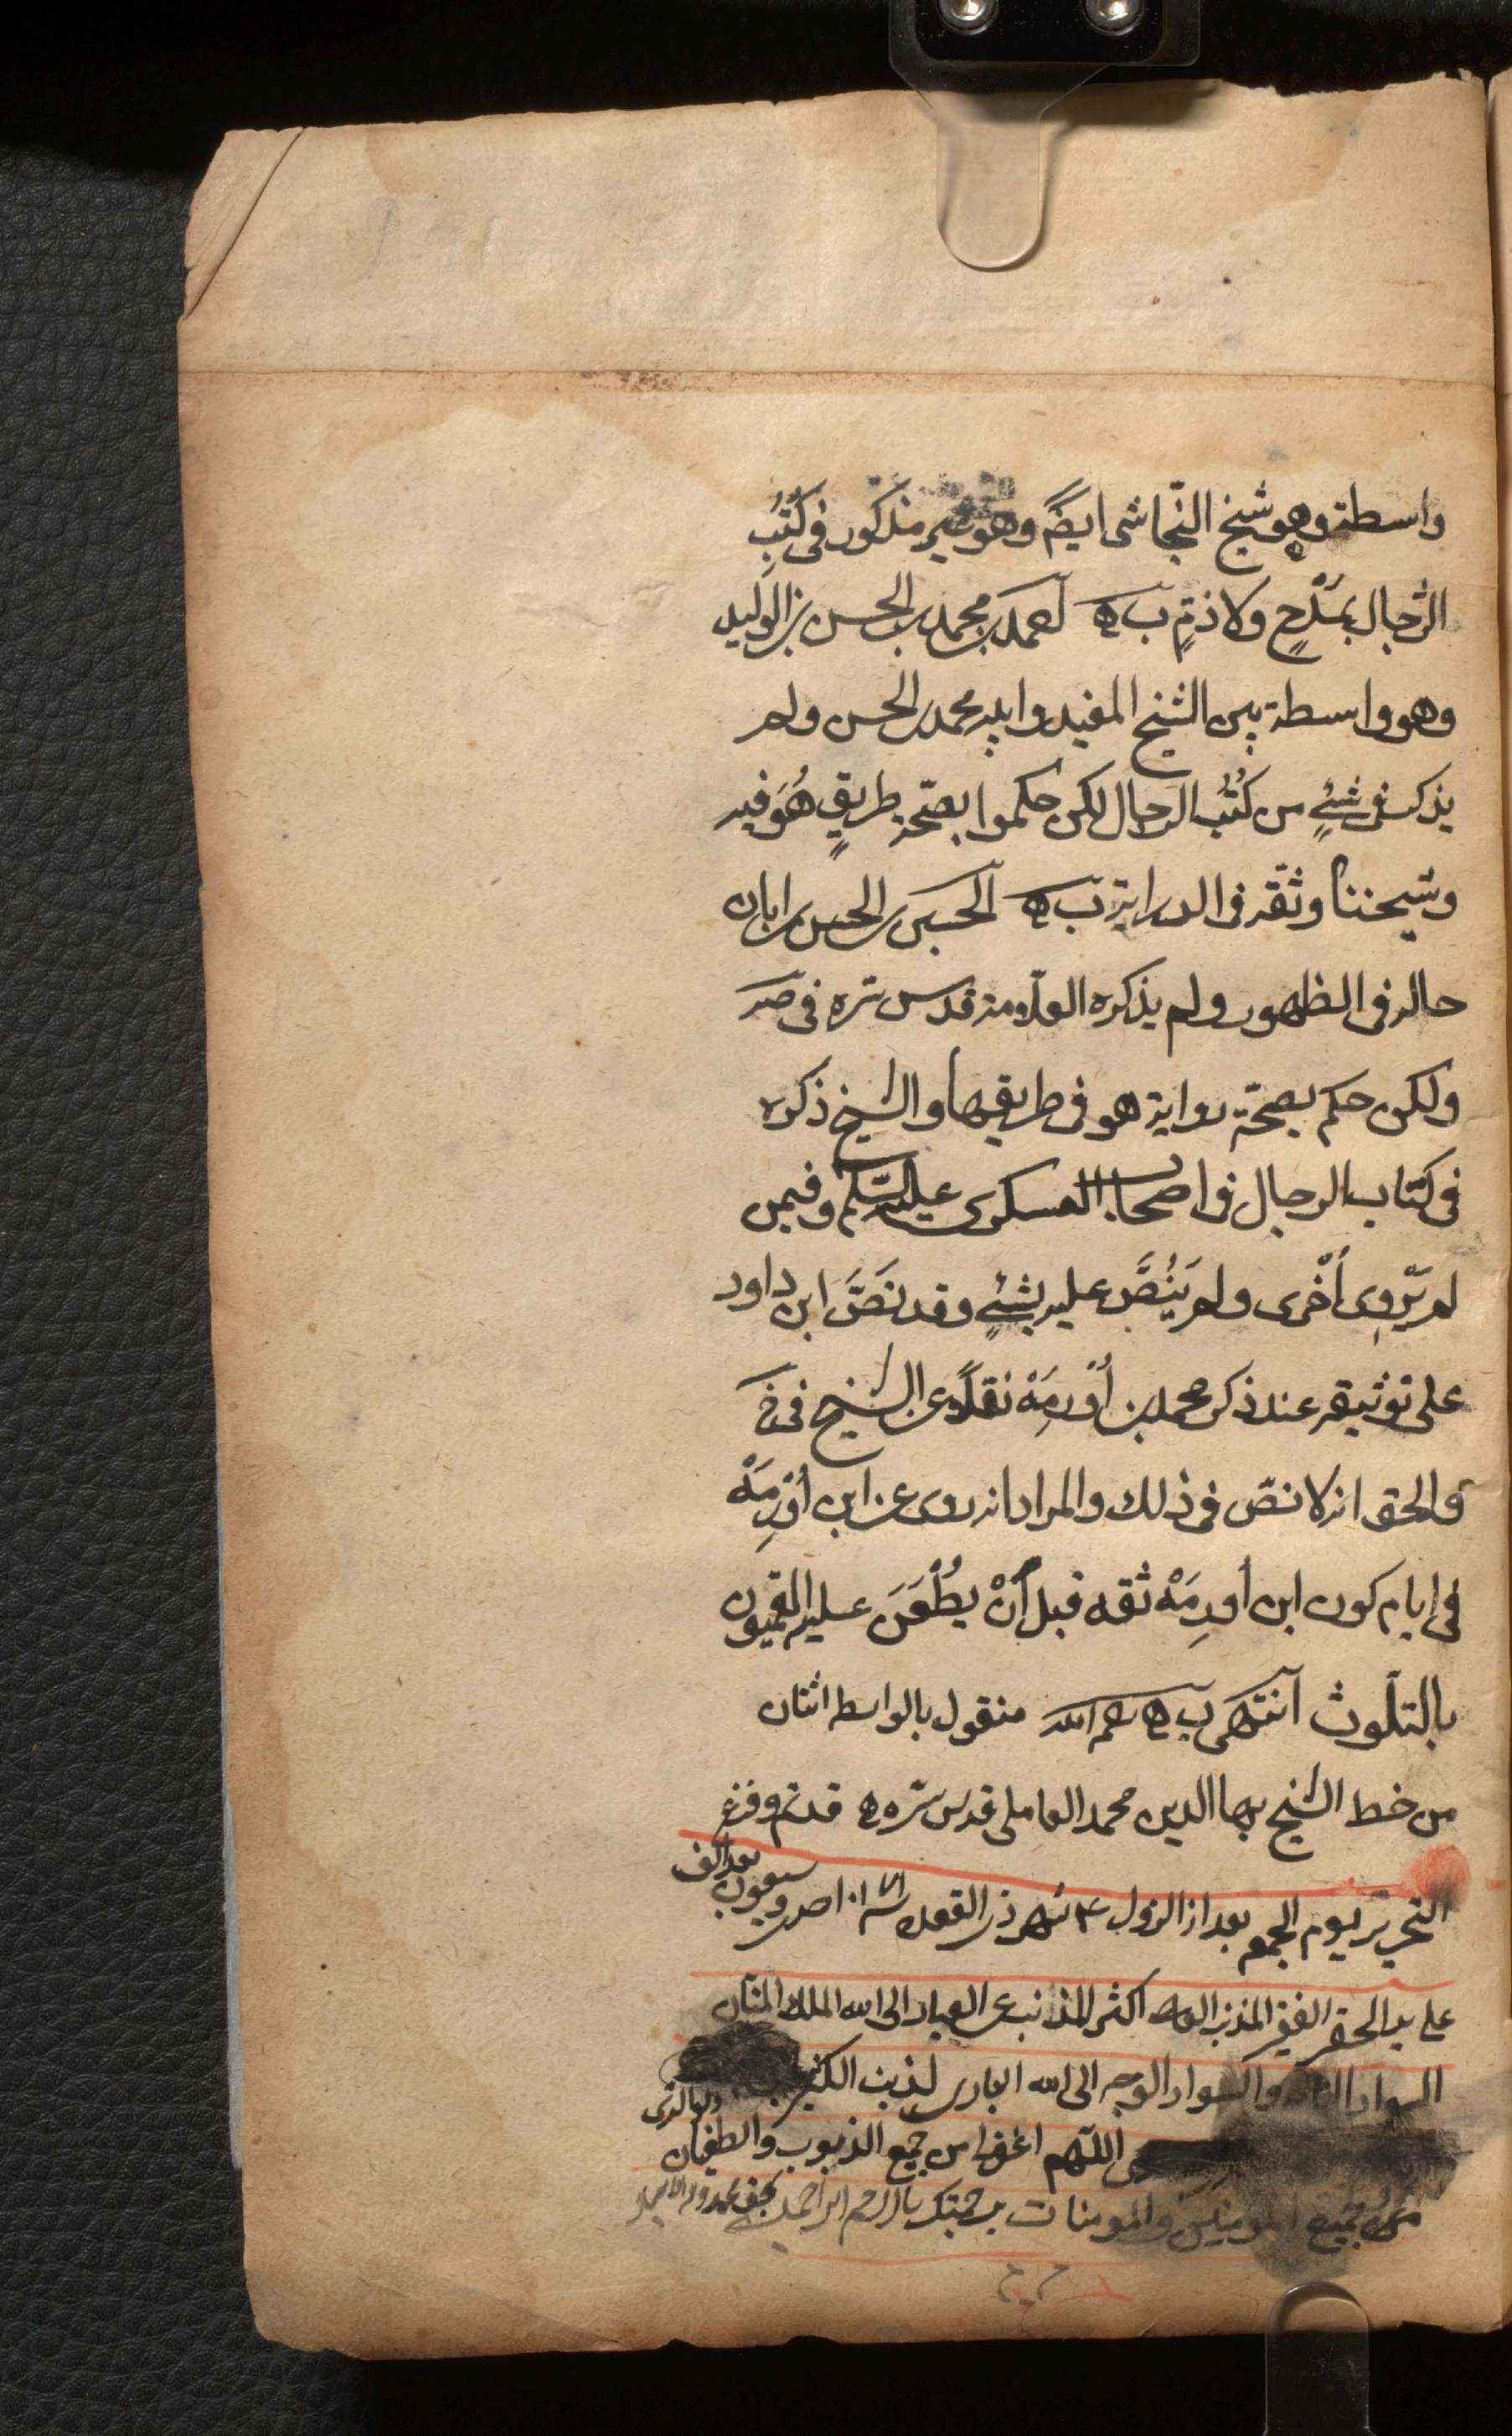 واسطة وهو شيخ النّجاشى ايضً وهو غير مذكور فى كُتُبِ
الرّجال بمَدْحٍ ولا ذمٍّ ب ه احمد بن محمد بن الحسن بن الوليد
وهو واسطة بين الشيخ المفيد وابيه محمد بن الحسن ولم
يذكر فى شئٍ من كُتُب الرجال لكن حكموا بصحّة طريقٍ هُوَ فيه
وشيخنا وثقه فى الدراية ب ه الحسين بن الحسن بن ابان
حاله فى الظهور ولم يذكره العلّامة قدس سره فى صه
ولكن حكم بصحّة رواية هو فى طريقها والشيخ ذكره
فى كتاب الرجال فى اصحاب العسكرى عليه السّلم وفيمن
لم يَروِى أخْرى ولم يَنُصَّ عليه بشئٍ وقد نَصَّ ابن داود
على توثيقه عند ذكر محمد بن أُوْرِمَهْ نقلاً عن الشيخ فى خ
والحق انه لا نصّ فى ذلك والمراد انه روى عن ابن أُوْرِمَهْ
فى ايام كون ابن أُورِمَهْ ثقه قبل أنْ يطْعَنَ عليه القميون
بالتلّوث انتهى ب ه رحمه الله منقول بالواسطه اثنان
من خط الشيخ بهاالدين محمد العاملى قدس سّره ه قد تم وفرغ
التحرير يوم الجمعه بعد از الزول ٤ شهر ذى القعده ١٠٧١ احدى وسبعون بعد الف
على يد الحقير الفقير المذنب اكثر المذانب عن العباد الى الله الملك المنّان
السواد والسواد الوجه الى الله البارى لذنب الكثير
اللّهم اغفرا من جميع الذنوب والطغيان
من جميع المومنين والمومنات برحمتك يا ارحم الراحمين بحق محمد وآله الامجاد